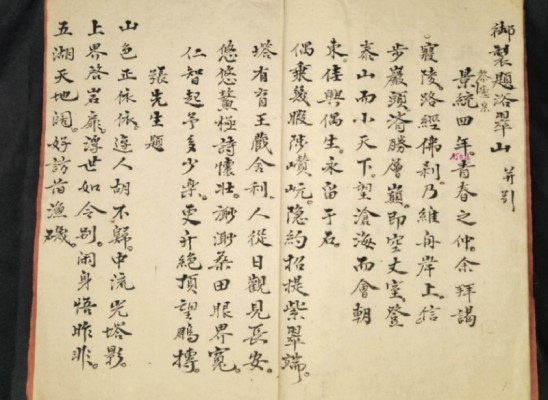 御製題浴翠山 并引
景統四年。青春之仲。余拜謁
寢陵路經佛刹。乃維舟岸上。信
步巖頭。濟勝層巔。即空丈室。登
泰山而小天下。望滄海而會朝
東。佳興偶生。永留于石。
偶乘幾暇陟巑岏。隱約招提紫翠端。
塔有育王藏舍利。人從日觀見長安。
悠悠鰲極詩懷壯。渺渺桑田眼界寬。
仁智起予多少樂。更升絕頂望鵬摶。
張先生題
山色正依依。遊人胡不歸。中流光塔影。
上界啓岩扉。浮世如今別。閑身悟昨非。
五湖天地闊。好訪旧漁磯。